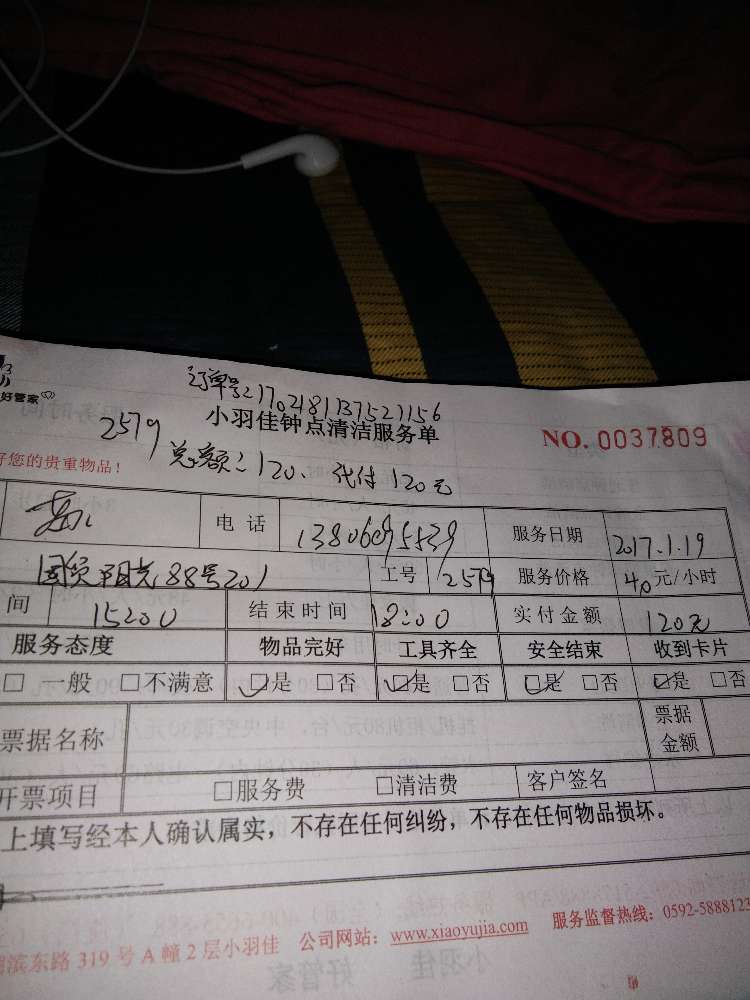 订单号:1702181137521156
好管家
2579
小羽佳钟点清洁服务单
NO. 0037809
好您的贵重物品!
总额:120. 代付120元
电话
服务日期 2017.1.19
国贸阳光88号201 工号 2579 服务价格 40元/小时
间 15:00 结束时间 18:00 实付金额 120元
服务态度 物品完好 工具齐全 安全结束 收到卡片
□ 一般 □不满意 ☑是 □否 ☑是 □否 ☑是 □否 ☑是 □否
票据名称 票据金额
开票项目 □服务费 □清洁费 客户签名
上填写经本人确认属实,不存在任何纠纷,不存在任何物品损坏。
滨东路 319 号 A 幢 2 层小羽佳 公司网站:www.xiaoyujia.com 服务监督热线:0592-5888123